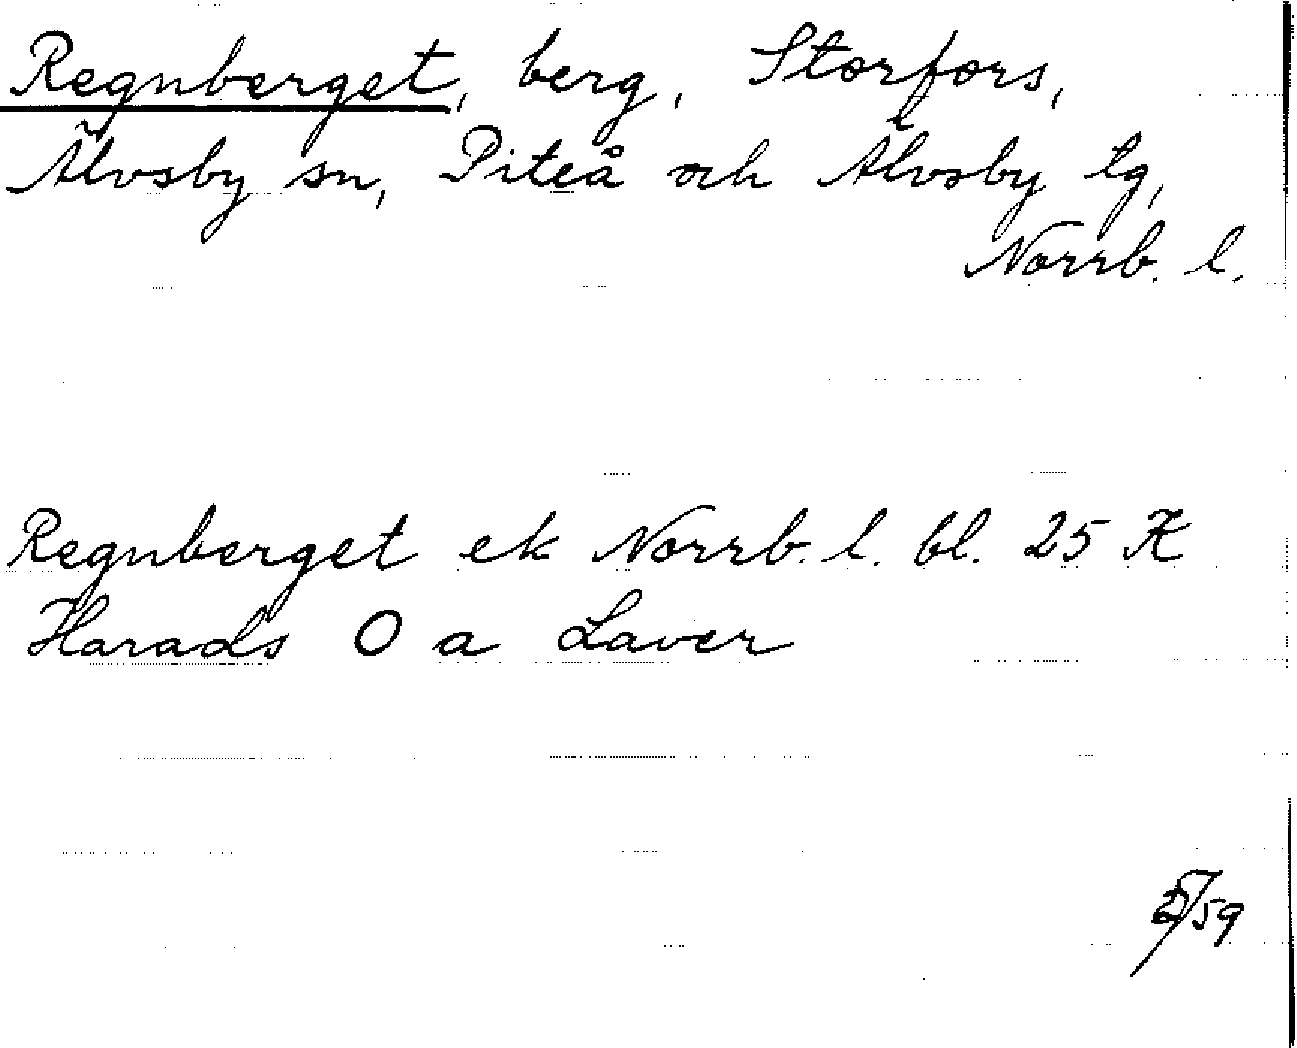 Regnberget, berg, Storfors,
Älvsby sn, Piteå och Älvsby tg,
Norrb. l.
Regnberget ek Norrb. l. bl. 25 K
Harads O a Laver
/59